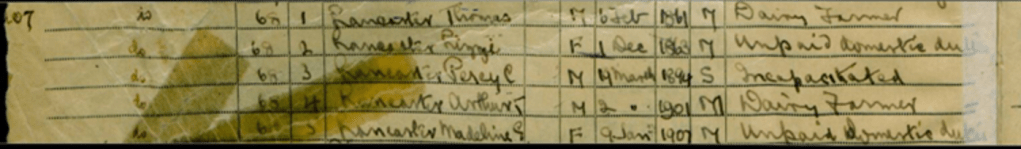 107 do 60 1 Lancaster Thomas M 6 Feb 1861 M Dairy Farmer
do 60 2 Lancaster Lizzi F 1 Dec 1863 M Unpaid domestic du
do 60 3 Lancaster Percy C M 14 March 1894 S Incapacitated
do 60 4 Lancaster Arthur T M 2 " 1901 M Dairy Farmer
do 60 5 Lancaster Madeline E F 9 Jan 1907 M Unpaid domestic du